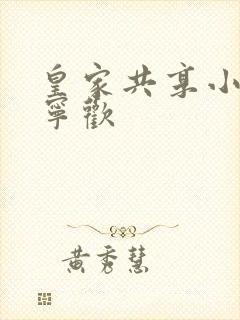 皇家共享小
寧歡
黃秀慧